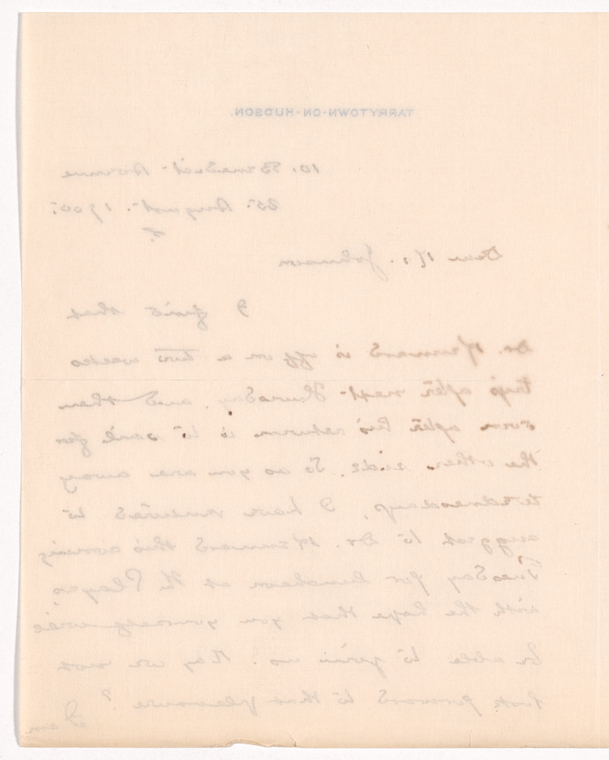 TARRYTOWN-ON-HUDSON.
10. Benedict Avenue
25. August. 1905.
Dear Mr. Johnson
I find that
Dr. is off on a two weeks
trip after next Thursday, and then
soon after his return is to sail for
the other side. So as you are away
Wednesdays, I have ventured to
suggest to Dr. this coming
Tuesday for luncheon at the Players,
with the hope that you yourself would
be able to join us. May we not
look forward to that pleasure?
I am